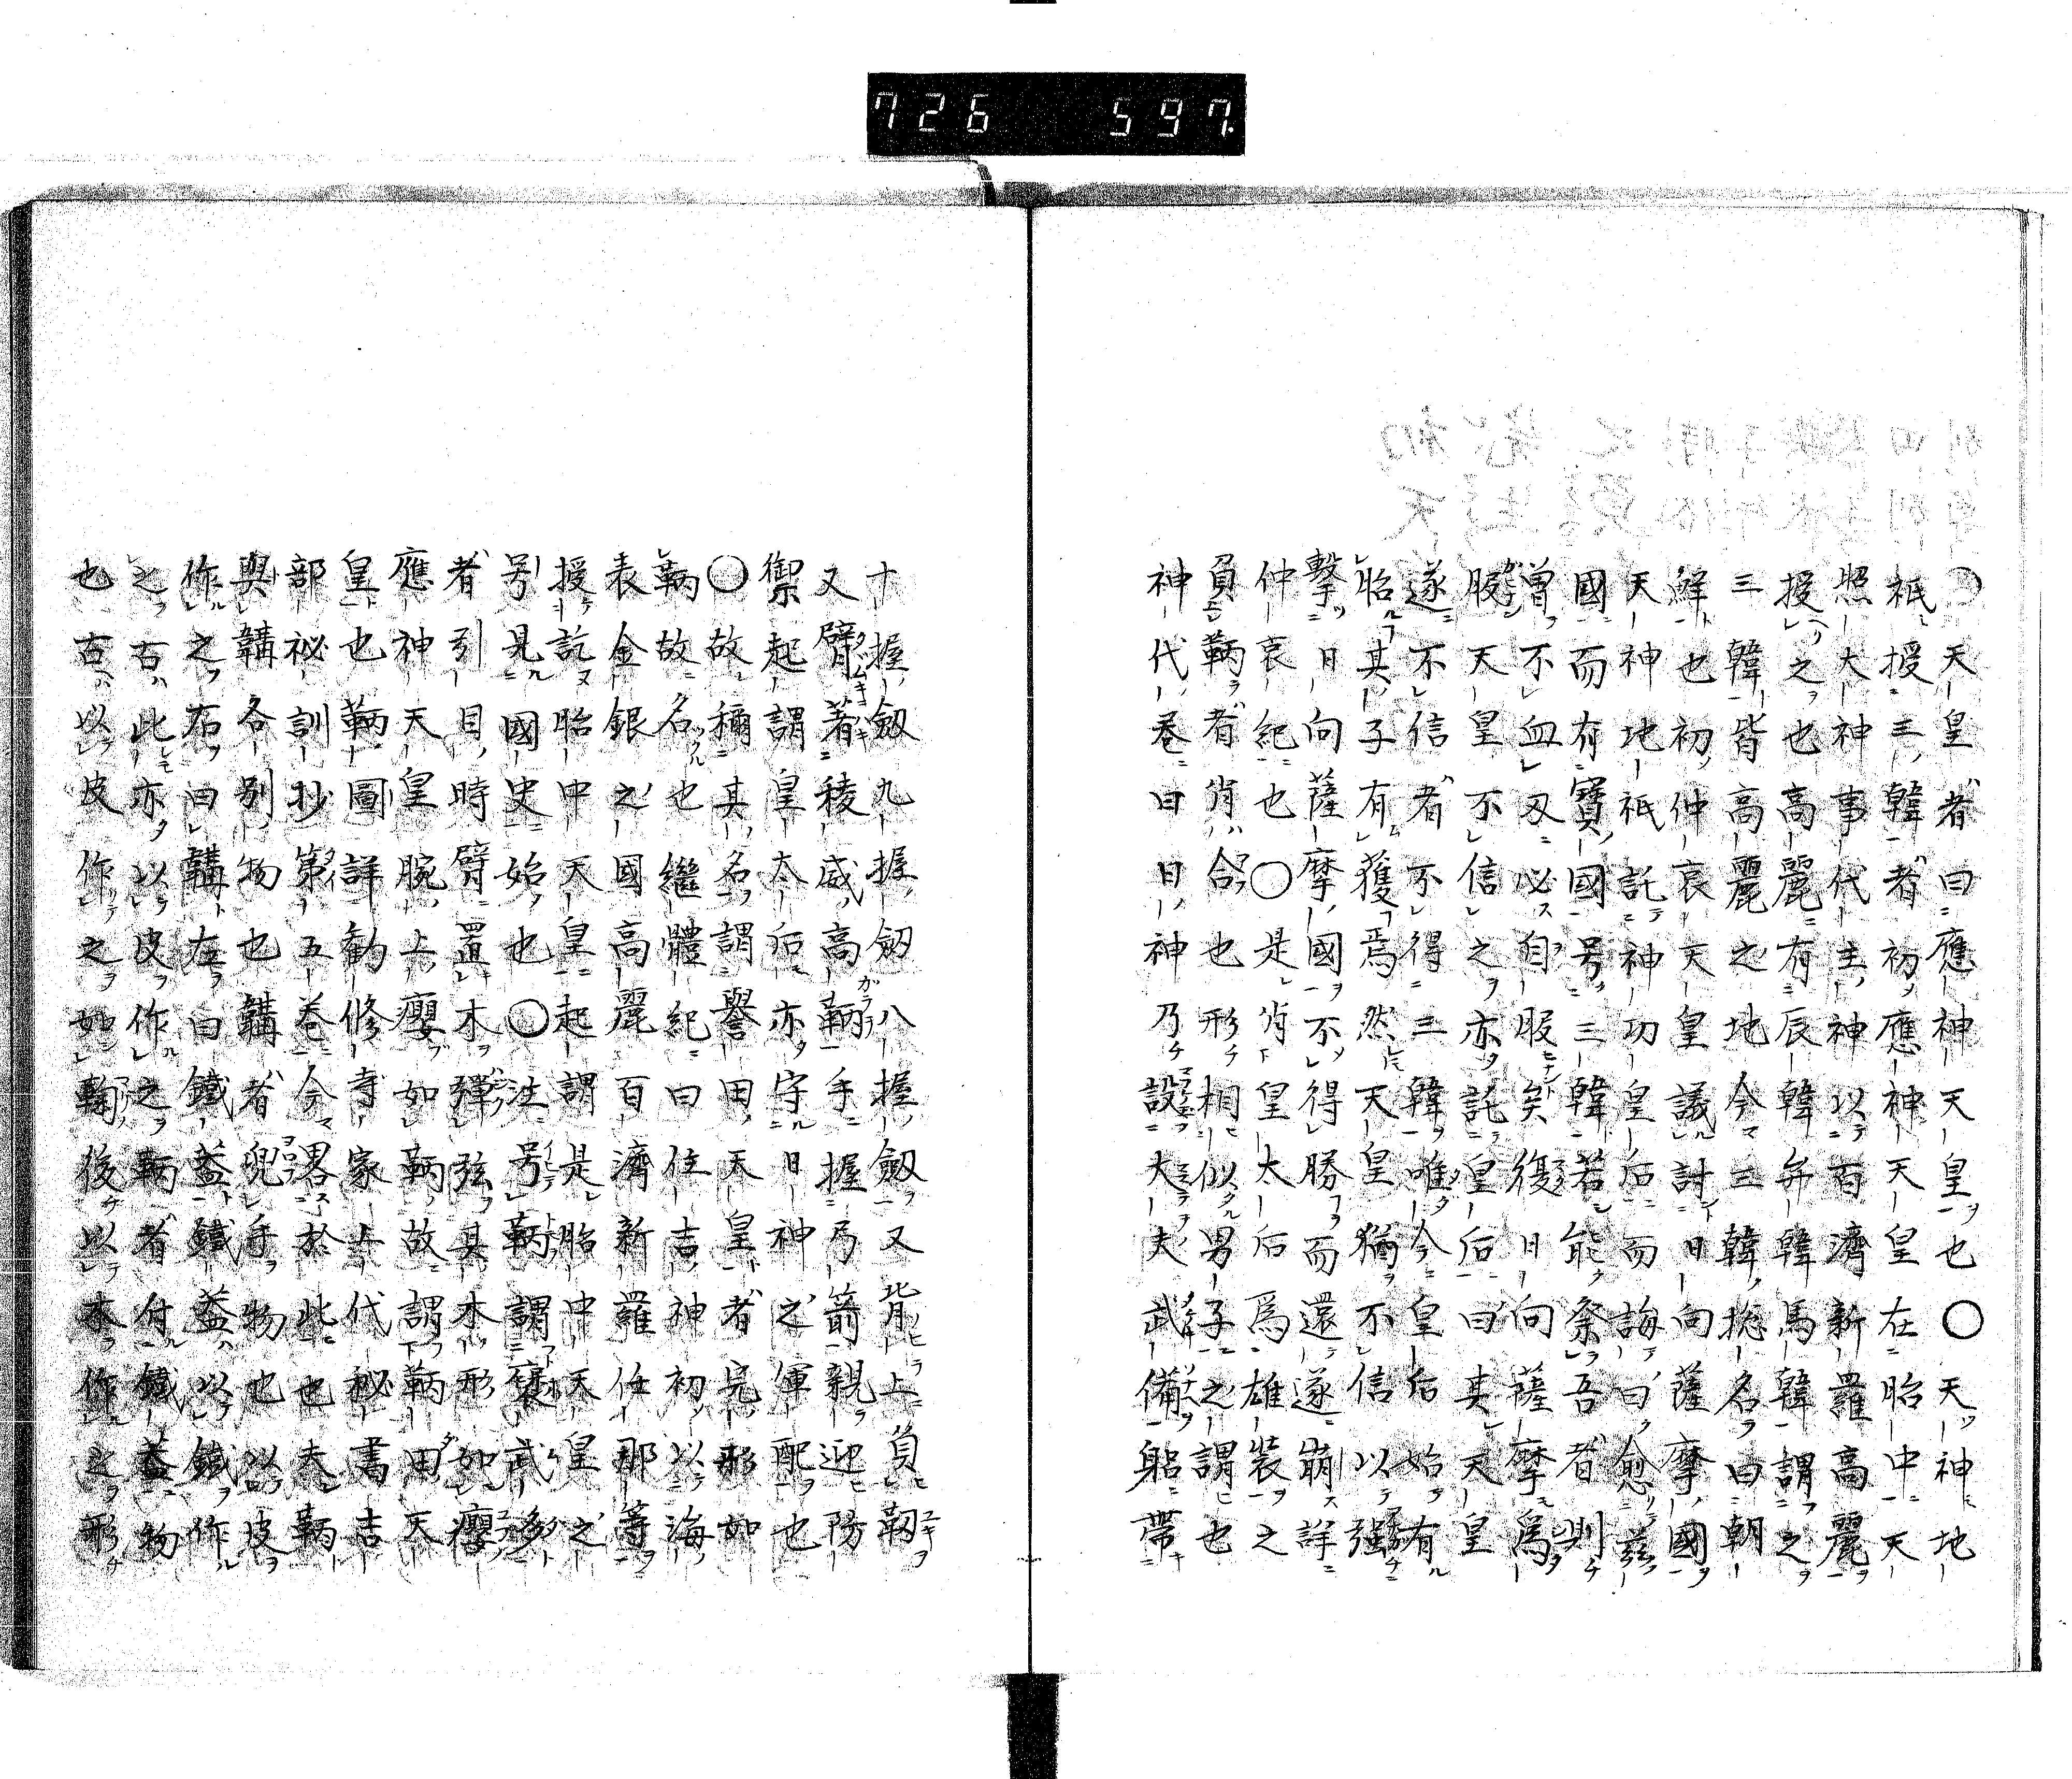 726 597
○天皇者曰應神天皇也○天神地
祇授三韓者初應神天皇在胎中天
照大神事代主神以百濟新羅高麗
授之也高麗有辰韓弁韓馬韓謂之
三韓皆高麗之地今三韓揔名曰朝
鮮也初仲哀天皇議討日向薩摩國
天神地祇託神功皇后而誨曰愈茲
國而有寶國号三韓若能祭吾者則
曽不血刄必自服矣復日向薩摩為
服天皇不信之亦託皇后曰其天皇
遂不信者不得三韓唯今皇后始有
胎其子有獲焉然天皇猶不信以強
擊日向薩摩國不得勝而還遂崩詳
仲哀紀也○是肖皇太后為雄装之
負鞆者肖合也形相似男子之謂也
神代巻曰日神乃設大夫武備躬帶
十握劔九握劔八握劔又背上負靱
又臂著稜威高鞆手握弓箭親迎陽
禦起謂皇太后亦守日神之軍配也
○故稱其名謂譽田天皇者完形如
鞆故名也繼體紀曰住吉神初以海
表金銀之國高麗百濟新羅任那等
授託胎中天皇起謂是胎中天皇之
号見國史始也○注号鞆謂襃武多
者引目時臂置木彈弦其木形如癭
應神天皇腕上癭如鞆故謂鞆田天
皇也鞆圖詳勧修寺家上代秘書吉
部祕訓抄第五巻今畧於此也夫鞆
與韝各別物也韝者兜手物也以皮
作之右曰韝左曰鐵蓋鐵蓋以鐵作
之右此亦以皮作之鞆者付鐵蓋物
也古以皮作之如鞠後以木作之形